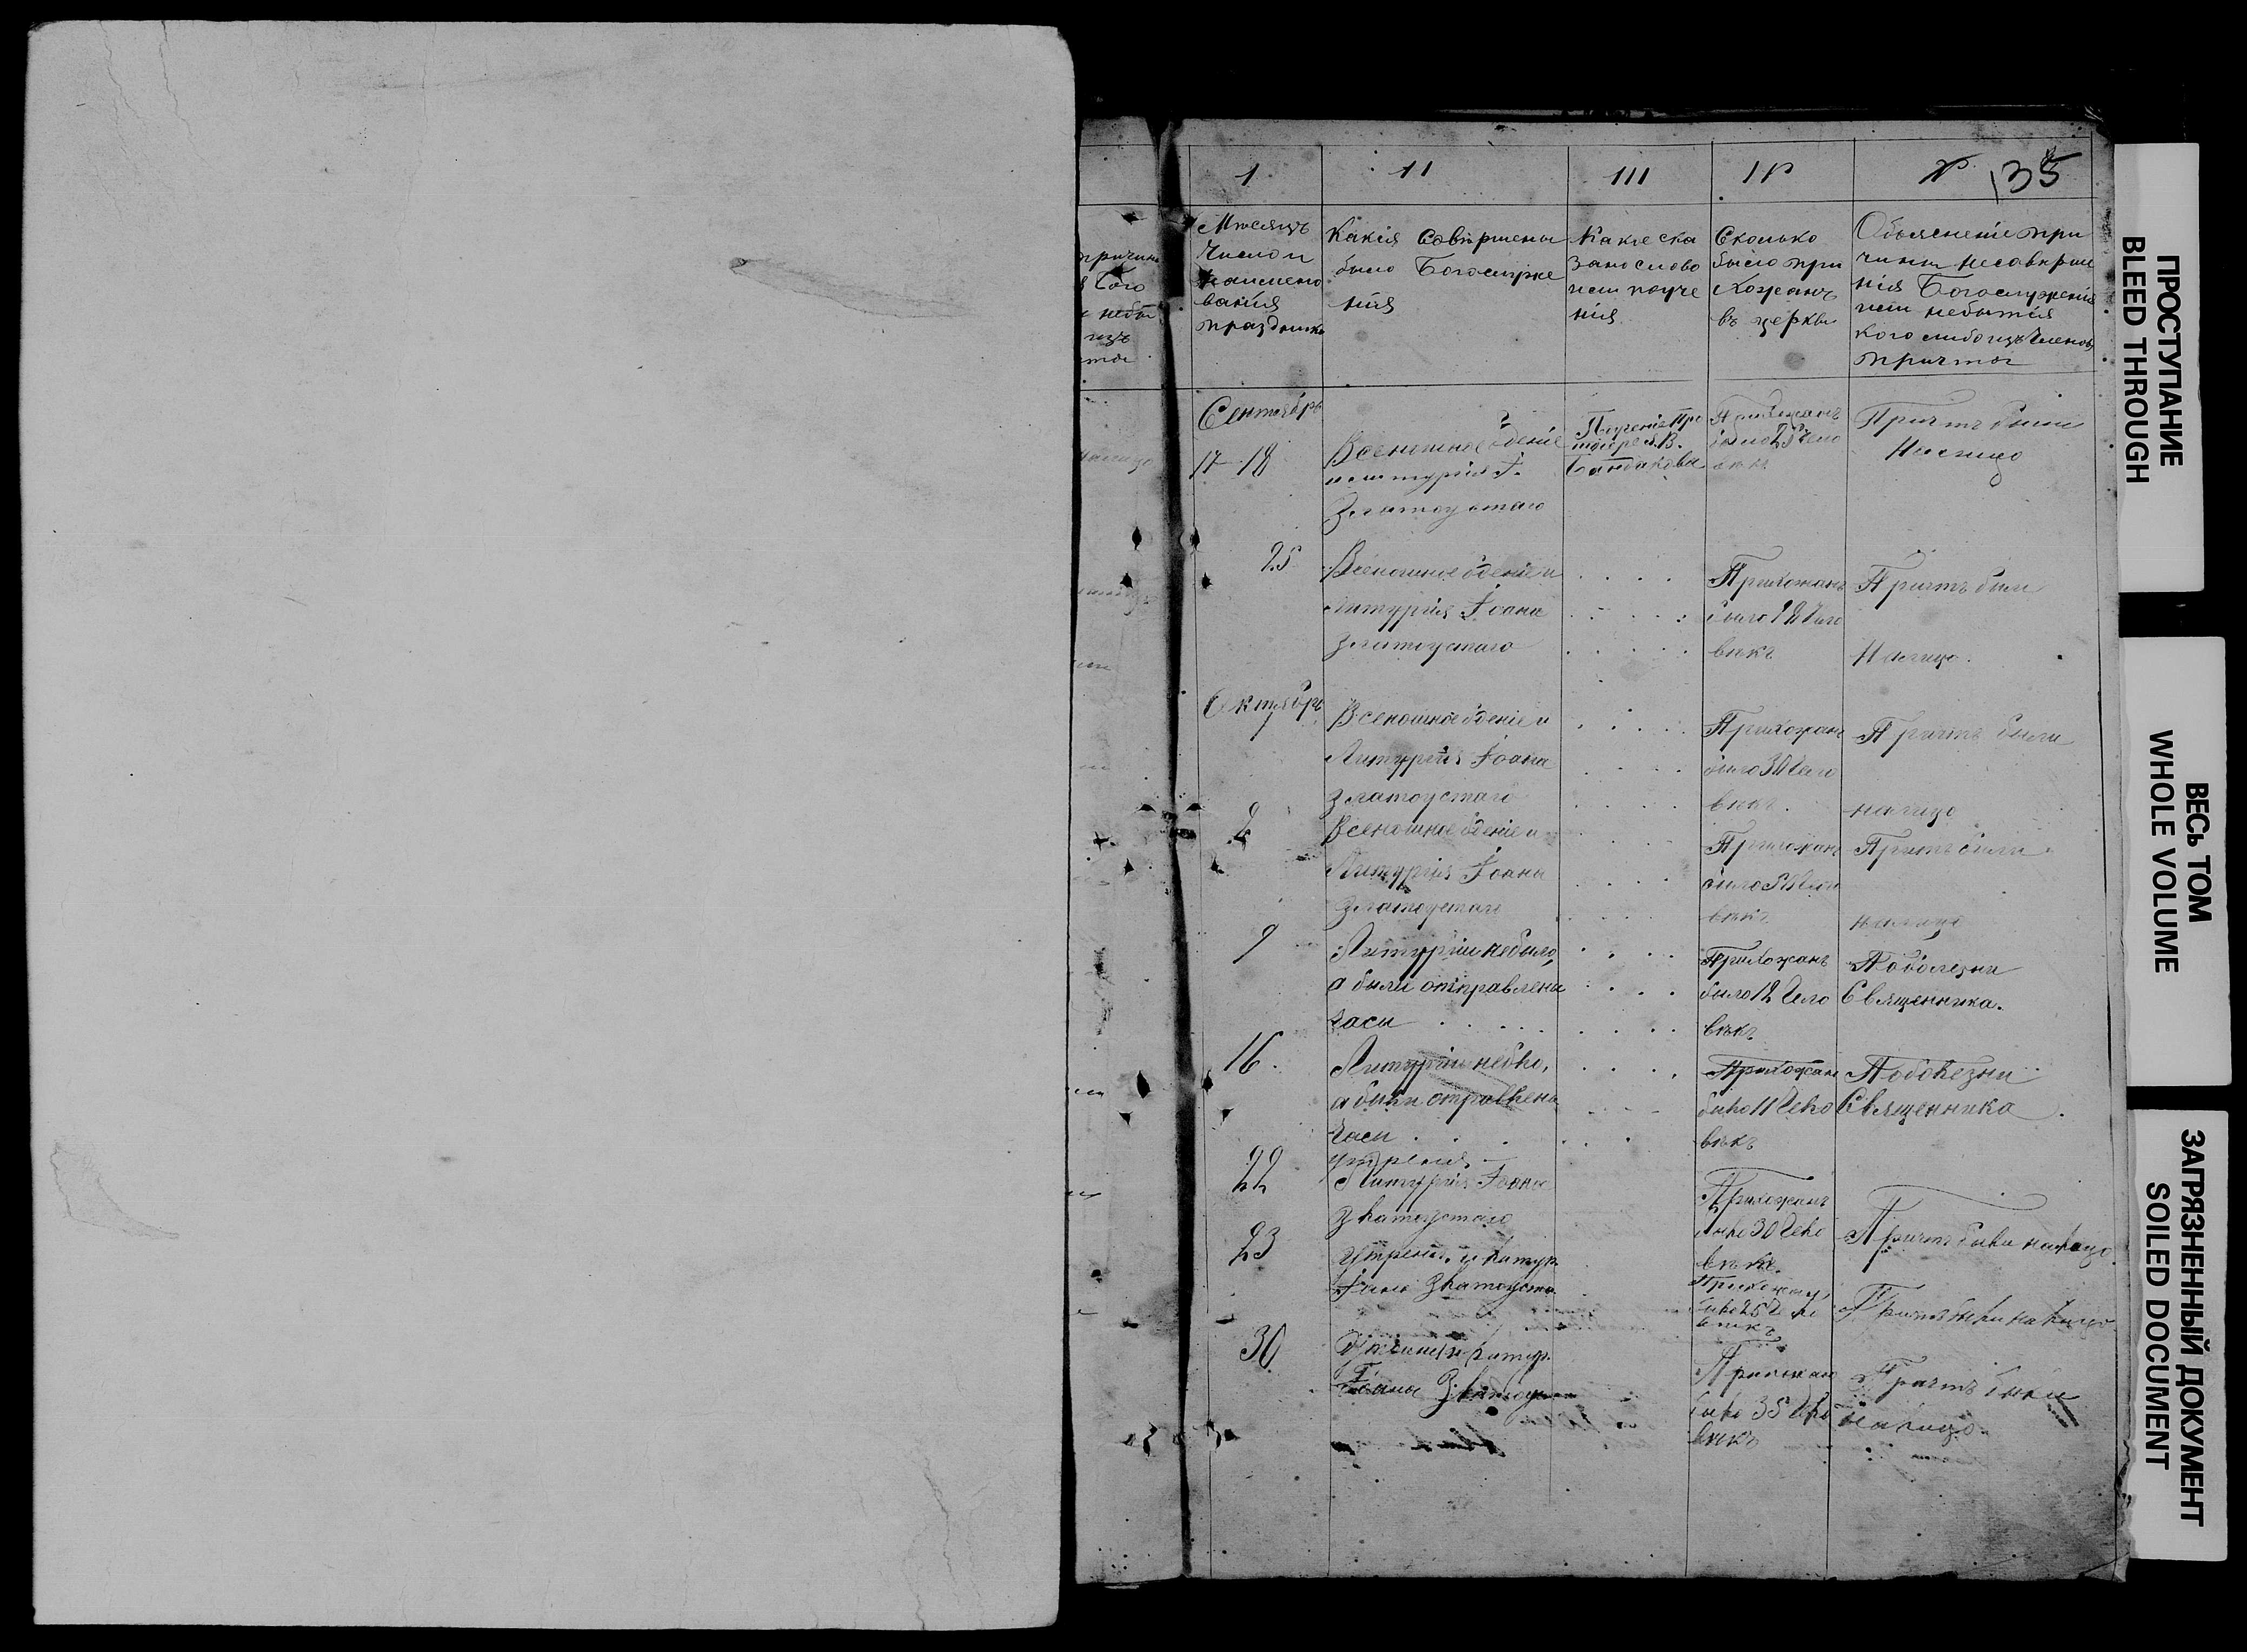 1 11 111 1V V 135
Мѣсяцъ
Число и
наимено
вания
праздника
Какія Совѣршены
было Богослуже
ния
Какие ска
зано слово
или поуче
ния
Сколько
было при
хожанъ
въ церкви
Объясненіе при
чины несоверше
нія Богослуженія
или небытія
кого либо изъ Членовъ
причта
причин
Бого
небы
изъ
Сентябрь
17-18
Всенощное бденіе
и литургія І.
Златоустаго
Поученіе Про
тоіерея В.
Бандакова
Прихожанъ
было 25 чело
вѣкъ
Причтъ были
Налицо
25
Всенощное бденіе и
литургія Іоана
златоустаго
Прихожанъ
было 18 Чело
вѣкъ
Причтъ были
Налицо.
Октябрь
1
Всенощное бденіе и
Литургія Іоана
златоустаго
Прихожанъ
было 30 Чело
вѣкъ.
Причтъ были
налицо
2
Всенощное бденіе и
Литургія Іоана
златоустаго
Прихожанъ
было Чело
вѣкъ
Причтъ были
налицо
9
Литургіи небыло,
а были отправлены
часы
Прихожанъ
было 12 Чело
вѣкъ
По болезни
Священника.
16.
Литургіи небыло,
а были отправлены
Часы
Прихожанъ
было 11 Чело
вѣкъ
По болезни
Священника
22
утреня
Литургія Іоана
Златоустаго
Прихожанъ
было 30 Чело
вѣкъ.
Причтъ были налицо
23
Утреня и литур.
Іоана Златоуста
было 25 Чело
вѣкъ
Причтъ были налицо
30
литур.
Іоана
Прихожан
было 35 Чело
вѣкъ
Причтъ были
налицо.
ПРОСТУПАНИЕ
BLEED THROUGH
ВЕСЬ ТОМ
WHOLE VOLUME
ЗАГРЯЗНЕННЫЙ ДОКУМЕНТ
SOILED DOCUMENT